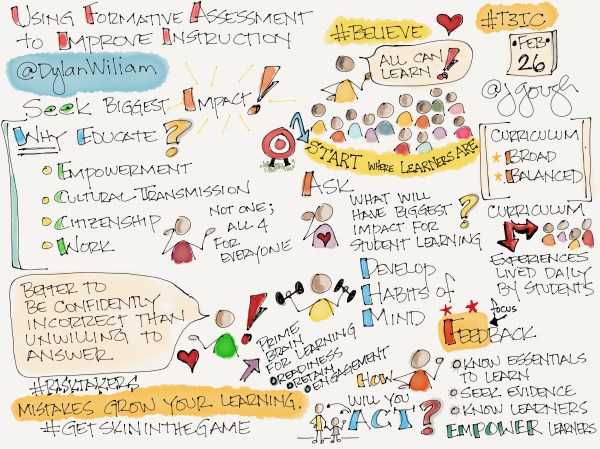 USING FORMATIVE ASSESSMENT
to IMPROVE INSTRUCTION
@DylanWiliam
SEEK BIGGEST IMPACT!
WHY EDUCATE?
EMPOWERMENT
CULTURAL TRANSMISSION
CITIZENSHIP
WORK
NOT ONE;
ALL 4
FOR
EVERYONE
#BELIEVE
ALL CAN
LEARN!
START WHERE LEARNERS ARE
#T3IC
FEB
26
@jgough
CURRICULUM
BROAD
BALANCED
ASK
WHAT WILL
HAVE BIGGEST
IMPACT FOR
STUDENT LEARNING
?
CURRICULUM
EXPERIENCES
LIVED DAILY
BY STUDENTS
BETTER TO
BE CONFIDENTLY
INCORRECT THAN
UNWILLING TO
ANSWER
!
#RISKTAKERS
MISTAKES GROW YOUR LEARNING.
#GETSKININTHEGAME
PRIME
BRAIN
FOR LEARNING
READINESS
RETAIN
ENGAGEMENT
DEVELOP
HABITS OF
MIND
HOW
WILL YOU
ACT?
focus
FEEDBACK
KNOW ESSENTIALS
TO LEARN
SEEK EVIDENCE
KNOW LEARNERS
EMPOWER LEARNERS